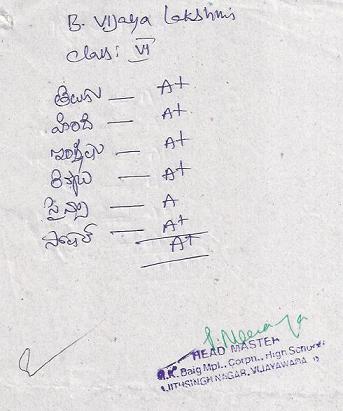 B. Vijaya Lakshmi
Class: VI
తెలుగు — A+
హిందీ — A+
ఇంగ్లీషు — A+
లెక్కలు — A+
సైన్సు — A
సోషల్ — A+
A+
HEAD MASTER
A.K. Baig Mpl., Corpn., High School
AJITHSINGH NAGAR, VIJAYAWADA